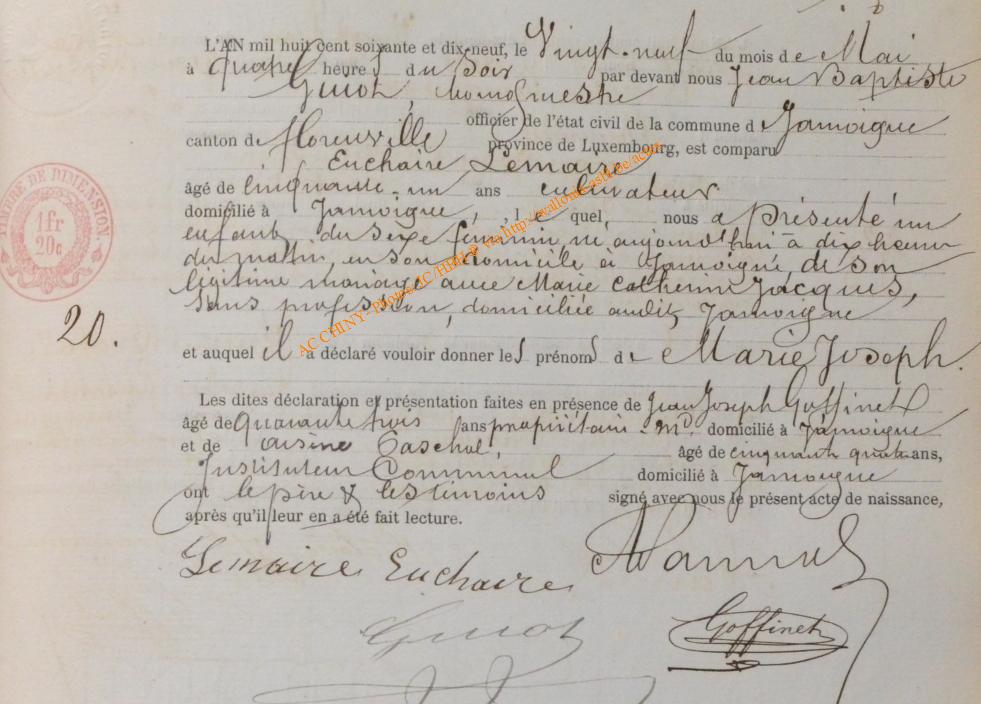 L'AN mil huit cent soixante et dix-neuf, le Vingt-neuf du mois de Mai
à quatre heures du soir par devant nous Jean Baptiste
Guiot, bourgmestre
officier de l'état civil de la commune d Jamoigne
canton de Florenville province de Luxembourg, est comparu
Euchaire Lemaire
âgé de cinquante-un ans cultivateur
domicilié à Jamoigne, lequel, nous a présenté un
enfant du sexe féminin, né aujourd'hui à dix heures
du matin, en son domicile à Jamoigne, de son
légitime mariage avec Marie Catherine Jacques,
sans profession, domiciliée audit Jamoigne
20.
et auquel il a déclaré vouloir donner les prénoms de Marie Joseph.
Les dites déclaration et présentation faites en présence de Jean Joseph Goffinet
âgé de quarante trois ans propriétaire md. domicilié à Jamoigne
et de âgé de cinquante quatre ans,
Instituteur Communal domicilié à Jamoigne
ont le père & les témoins signé avec nous le présent acte de naissance,
après qu'il leur en a été fait lecture.
Lemaire Euchaire
Guiot
Goffinet
TIMBRE DE DIMENSION
1fr
20c